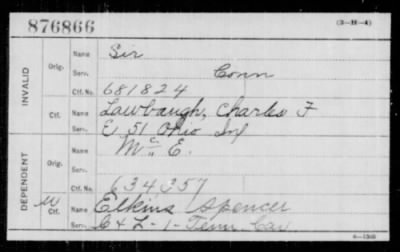 876866
(3-H-4)
INVALID
Orig.
Name Sir
Serv. Conn
Ctf. No. 681824
Ctf.
Name Lawbaugh, Charles F
Serv. E 51 Ohio Inf
DEPENDENT
Orig.
Name Mc" E.
Serv.
Ctf. No. 634357
W
Ctf.
Name Elkins Spencer
Serv. & L-1-Tenn Cav